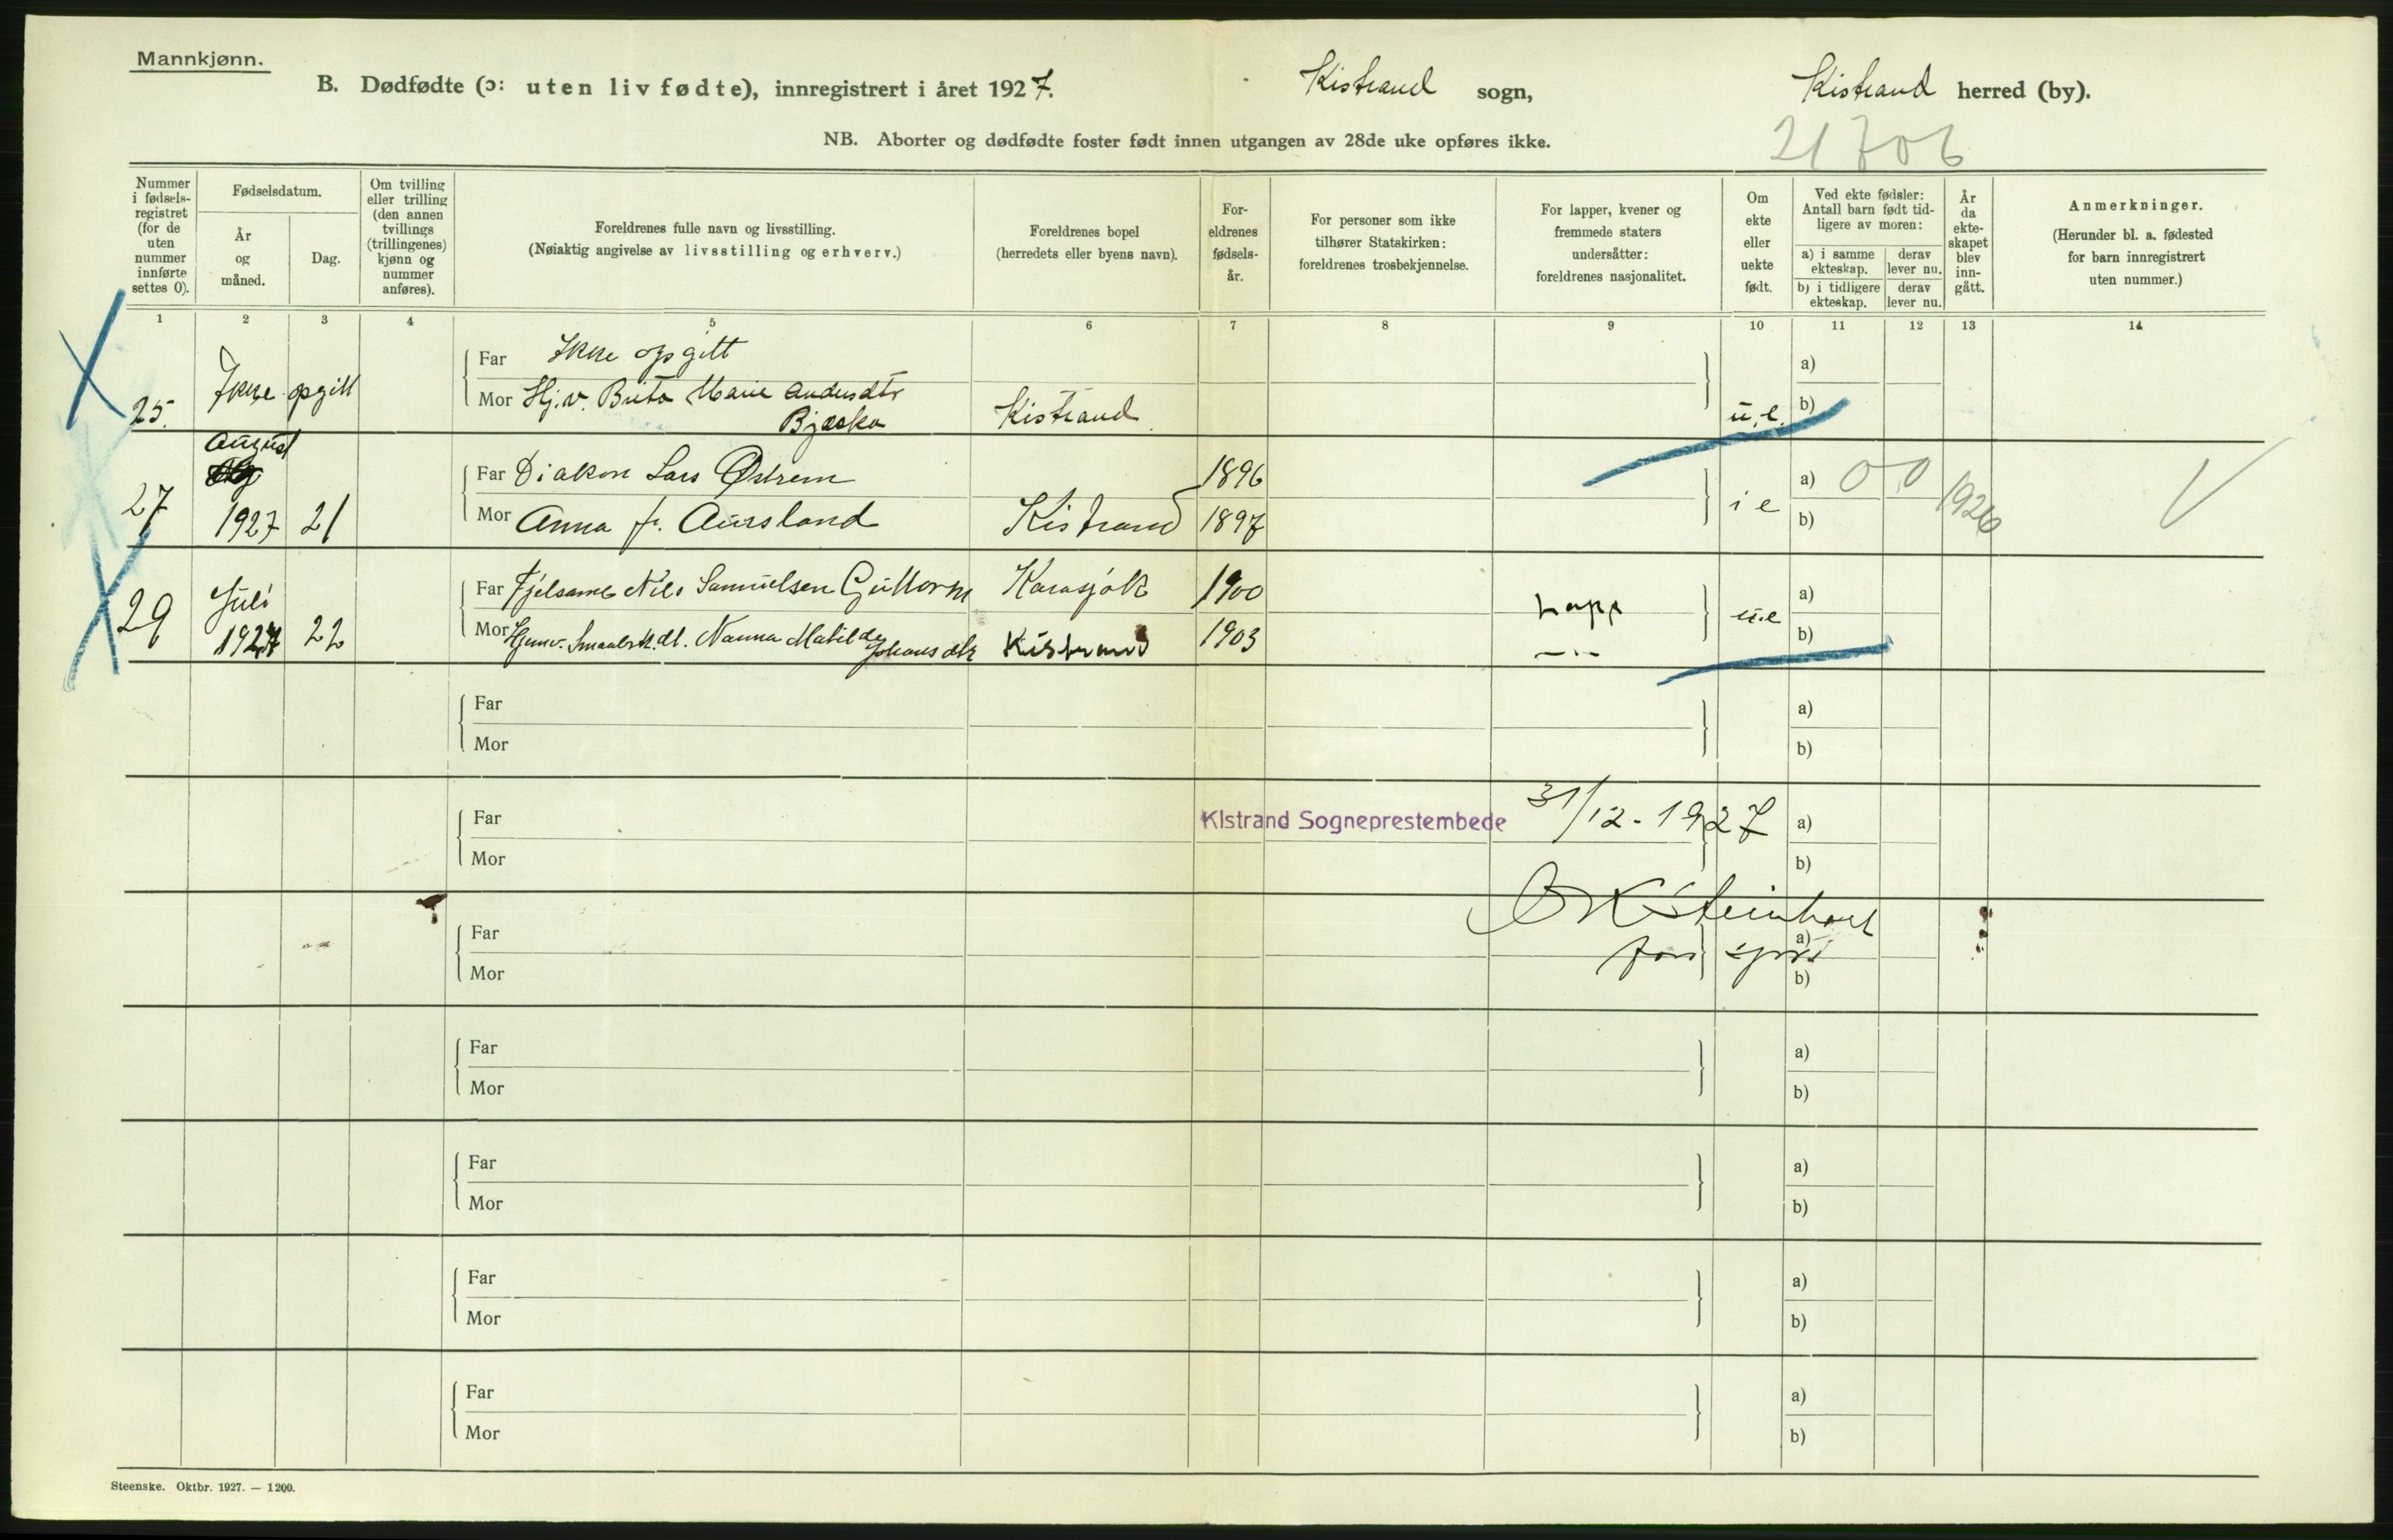 Mannkjønn.
B. Dødfødte (ɔ: uten liv fødte), innregistrert i året 1927.
Kistrand sogn,
Kistrand herred (by).
NB. Aborter og dødfødte foster født innen utgangen av 28de uke opføres ikke.
21706
Nummer i fødsels-registret (for de uten nummer innførte settes 0).
Fødselsdatum.
År og måned.
Dag.
Om tvilling eller trilling (den annen tvillings (trillingenes) kjønn og nummer anføres).
Foreldrenes fulle navn og livsstilling.
(Nøiaktig angivelse av livsstilling og erhverv.)
Foreldrenes bopel
(herredets eller byens navn).
For-eldrenes fødsels-år.
For personer som ikke tilhører Statskirken: foreldrenes trosbekjennelse.
For lapper, kvener og fremmede staters undersåtter: foreldrenes nasjonalitet.
Om ekte eller uekte født.
Ved ekte fødsler: Antall barn født tid-ligere av moren:
a) i samme ekteskap.
derav lever nu.
b) i tidligere ekteskap.
derav lever nu.
År da ekte-skapet blev inn-gått.
Anmerkninger.
(Herunder bl. a. fødested for barn innregistrert uten nummer.)
1 2 3 4 5 6 7 8 9 10 11 12 13 14
Far Ikke opgitt a)
25. Ikke opgitt Mor Hj.v. Brita Marie Andersdtr Kistrand u.e. b)
Bjaska
August
Far Diakon Lars Østrem 1896 a) 0 0
27 1927 21 Mor Anna f. Aursland Kistrand 1897 i e b) 1926
Juli Far Fjelsame Nils Samuelsen Guttorm Karasjok 1900 Lapp a)
29 1927 22 Mor Hjemv. Nanna Matilde Johansdtr Kistrand 1903 —"— u.e b)
Far a)
Mor b)
Far KIstrand Sogneprestembede 31/12-1927 a)
Mor b)
Far Steinholt a)
Mor b)
Far a)
Mor b)
Far a)
Mor b)
Far a)
Mor b)
Far a)
Mor b)
Steenske. Oktbr. 1927. — 1200.